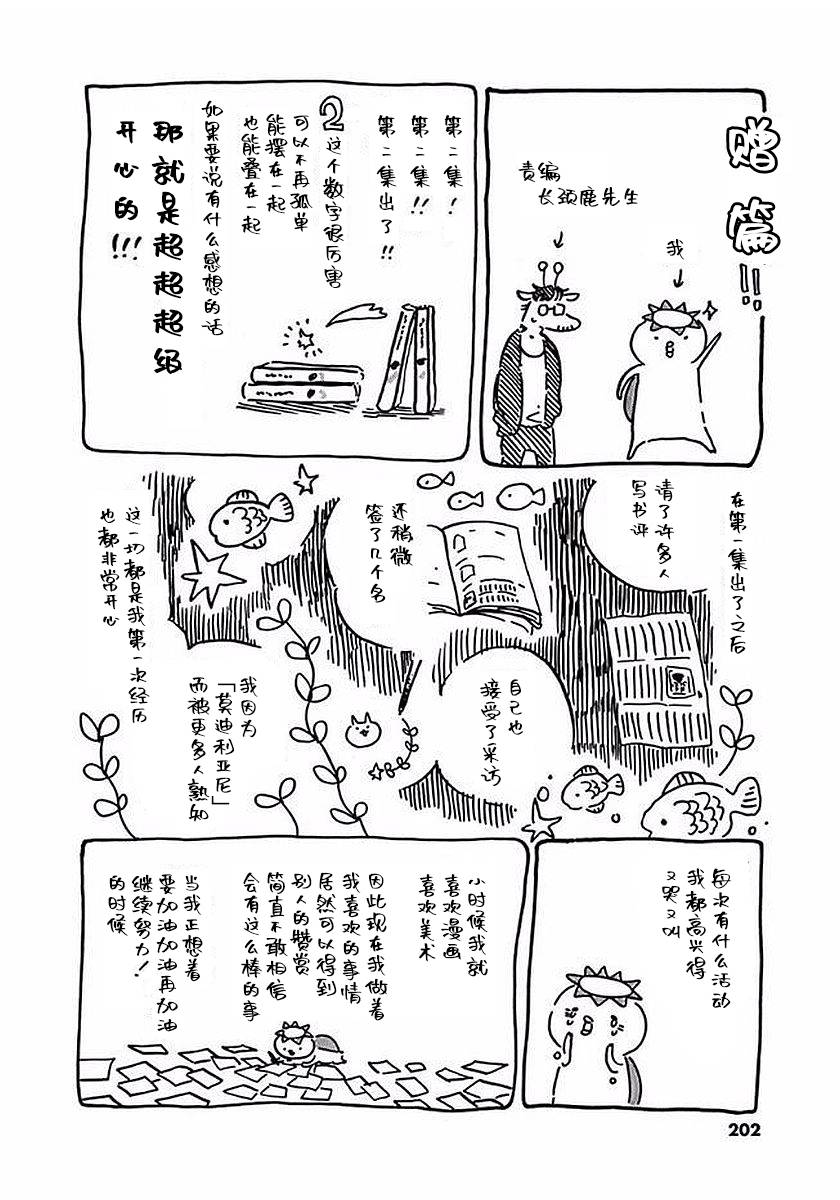 赠篇!!
责编
长颈鹿先生
我
第二集!
第二集!!
第二集出了!!
2这个数字很厉害
可以不再孤单
能摆在一起
也能叠在一起
如果要说有什么感想的话
那就是超超超级
开心的!!!
在第一集出了之后
请了许多人
写书评
自己也
接受了采访
还稍微
签了几个名
我因为
「莫迪利亚尼」
而被更多人熟知
这一切都是我第一次经历
也都非常开心
每次有什么活动
我都高兴得
又哭又叫
小时候我就
喜欢漫画
喜欢美术
因此现在我做着
我喜欢的事情
居然可以得到
别人的赞赏
简直不敢相信
会有这么棒的事
当我正想着
要加油加油再加油
继续努力!
的时候
202